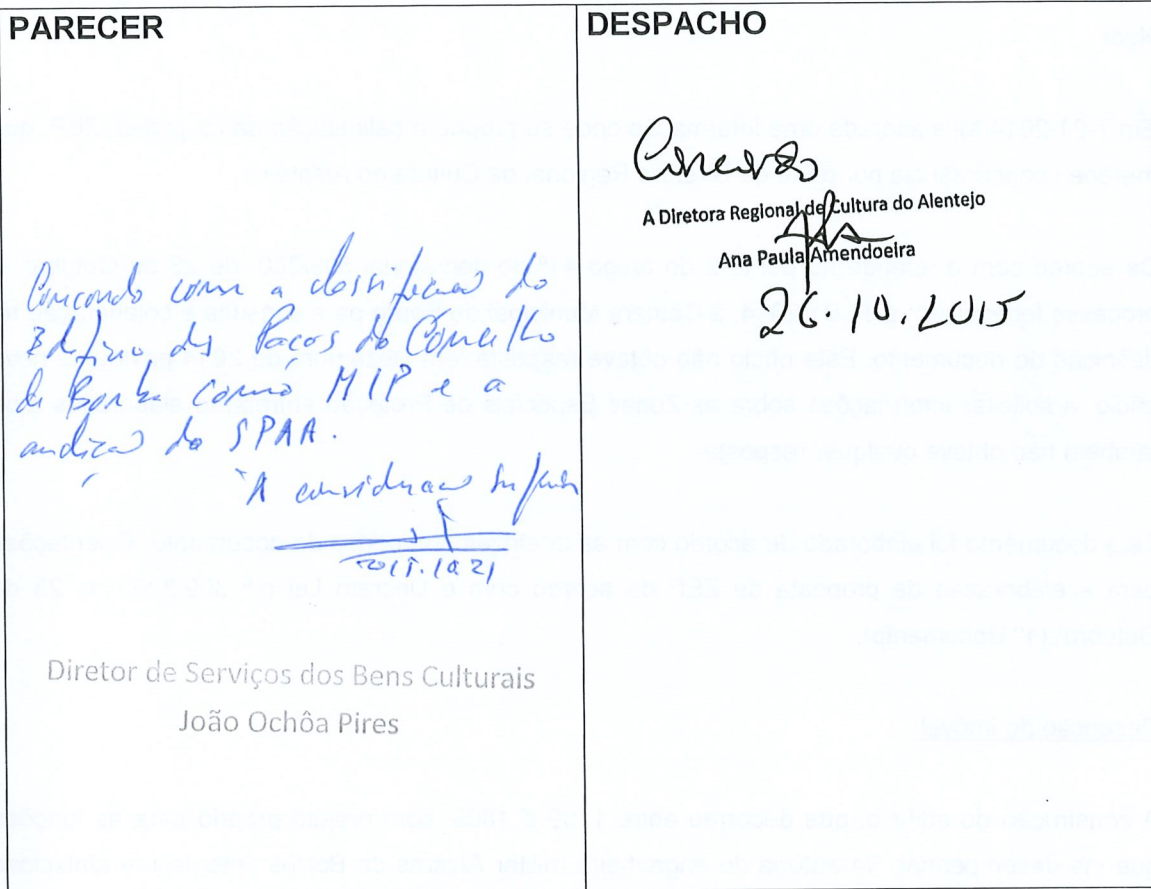 PARECER
Concordo com a classificação do
Edifício dos Paços do Concelho
de Borba como MIP e a
audição do SPAA.
À consideração superior
2015.10.21
Diretor de Serviços dos Bens Culturais
João Ochôa Pires
DESPACHO
Concordo
A Diretora Regional de Cultura do Alentejo
Ana Paula Amendoeira
26.10.2015